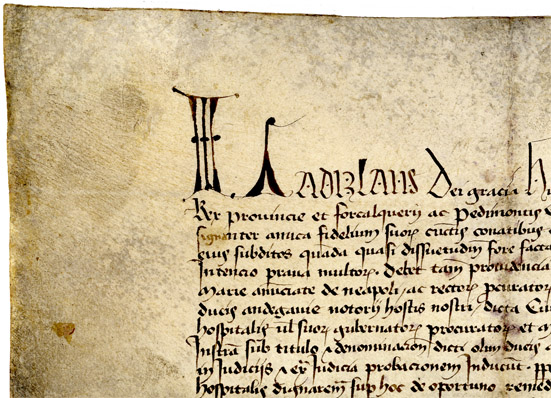 Ladizlaus Dei gracia Hu
Rex provincie et forcalquerij ac pedimontis
enter amica fidelium suor cunctis conatibus
eius subditos quada quasi dissuetudin fore facta
Intencio prava multor. debet tam providencia
Marie annuciate de neapoli / ac rector procurator
ducis andegavie notorij hostis nostri / dicta
hospitalis ul suor gubernator procurator et
Instra sub titulo & denominacion dicti olim ducis
in Judiciis & ex Judicia probacionem Inducunt.
hospitalis dignarem sup hoc de oportuno remed